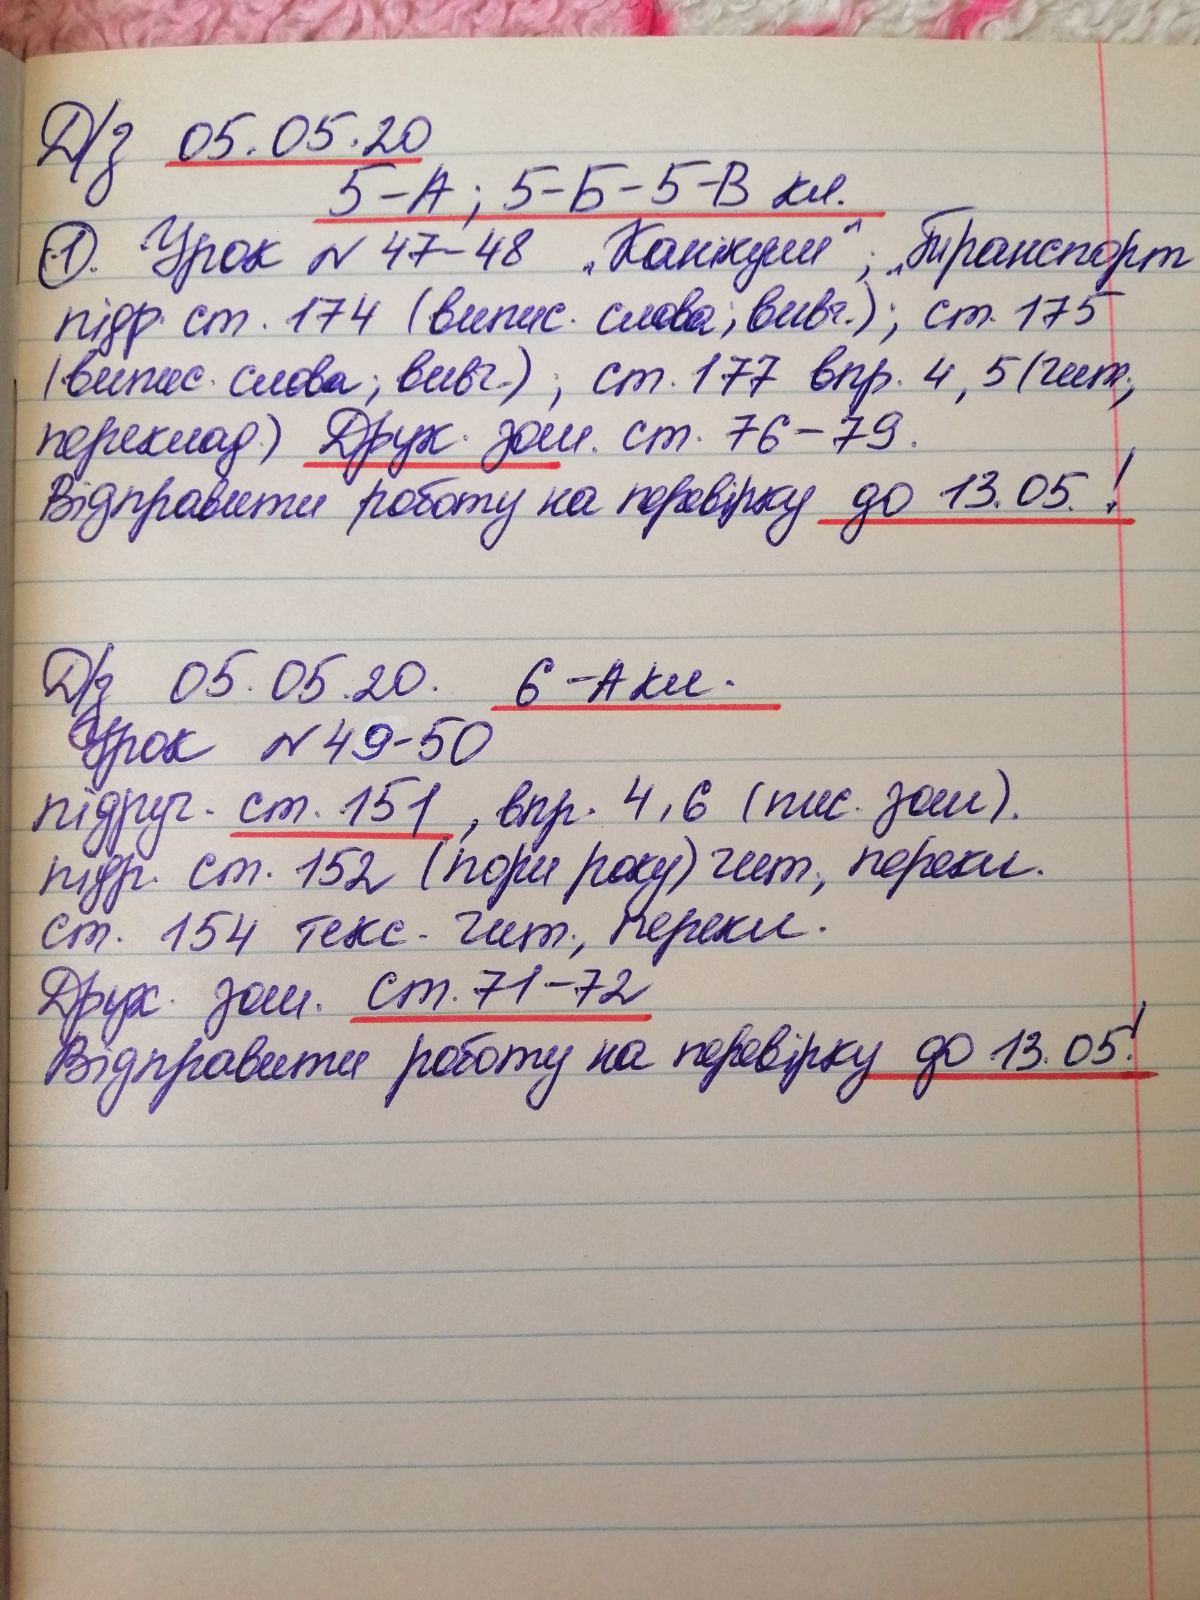 Д/з 05.05.20
5-А; 5-Б-5-В кл.
1. Урок № 47-48 „Канікули"; „Транспорт
підр. ст. 174 (випис. слова; вивч.); ст. 175
(випис. слова; вивч.); ст. 177 впр. 4, 5 (чит.,
переклад.) Друк. зош. ст. 76-79.
Відправити роботу на перевірку до 13.05.!
Д/з 05.05.20. 6-А кл.
Урок № 49-50
підруч. ст. 151, впр. 4, 6 (пис. зош).
підр. ст. 152 (пори року) чит., перекл.
ст. 154 текс. чит., перекл.
Друк. зош. ст. 71-72
Відправити роботу на перевірку до 13.05!